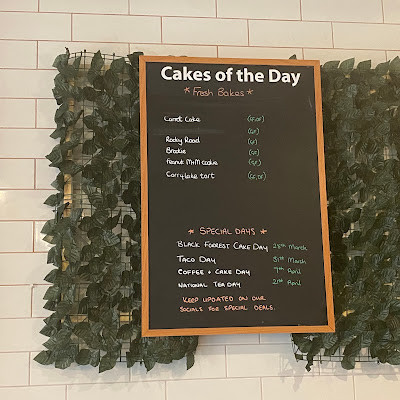 Cakes of the Day
* Fresh Bakes *
Carrot Cake (GF,DF)
(GF)
Rocky Road (GF)
Brookie (GF)
Peanut M+M cookie (GF)
tart (GF,DF)
* SPECIAL DAYS *
BLACK FORREST CAKE DAY 28th March
TACO DAY 31st March
COFFEE + CAKE DAY 7th April
NATIONAL TEA DAY 21st April
KEEP UPDATED ON OUR
SOCIALS FOR SPECIAL DEALS.